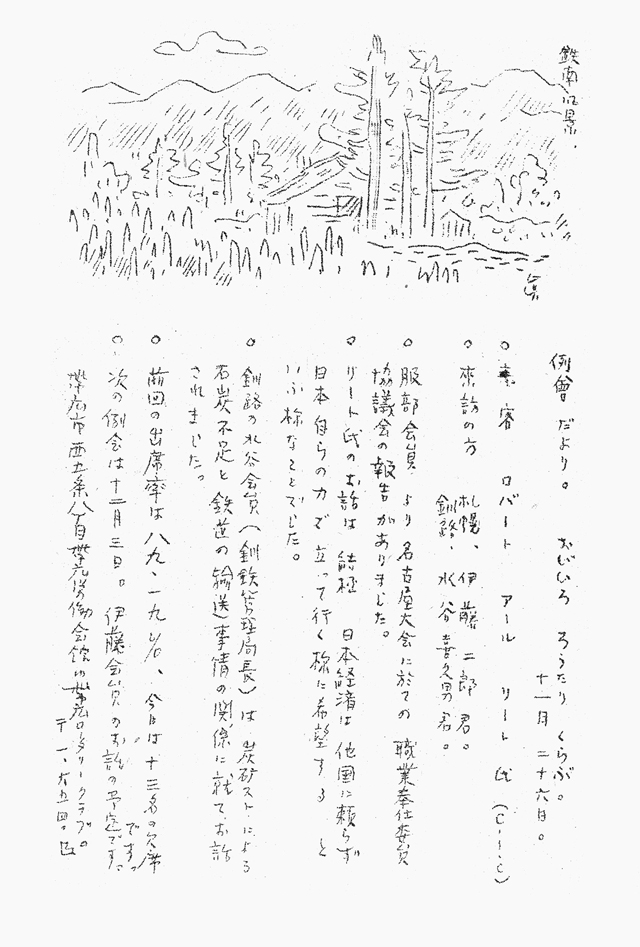 鉄南風景.
例會だより。　おびひろ　ろうたりくらぶ。
十一月二十六日。
○ 来客　ロバート　アール　リート　氏 (C.I.C)
○ 来訪の方　札幌、伊藤二郎君。
釧路、水谷喜久男君。
○ 服部会員より名古屋大会に於ての職業奉仕委員
協議会の報告がありました。
○ リート氏のお話は結極　日本経済は他国に頼らず
日本自らの力で立って行く様に希望すると
いふ様なことでした。
○ 釧路の水谷会員(釧鉄管理局長)は炭砿ストによる
石炭不足と鉄道の輸送事情の関係に就てお話
されました。
○ 前回の出席率は八九、一九%、今日は十三名の欠席
です。
○ 次の例会は十二月三日。伊藤会員のお話の予定です。
帯広市西五条八丁目帯広労働会館内帯広ロータリークラブ。